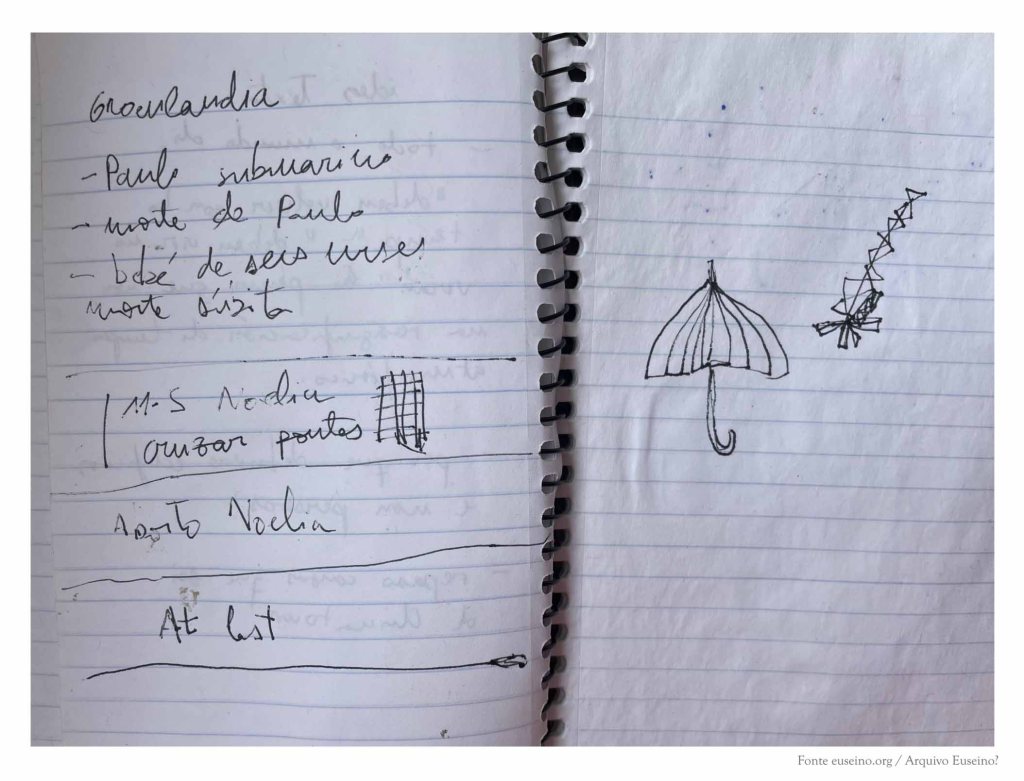 Groenlandia
- Paulo submarino
- morte de Paulo
- bebé de seis meses
morte súbita
M-S Noelia
cruzar pontes
Noelia
At last
Fonte euseino.org / Arquivo Euseino?